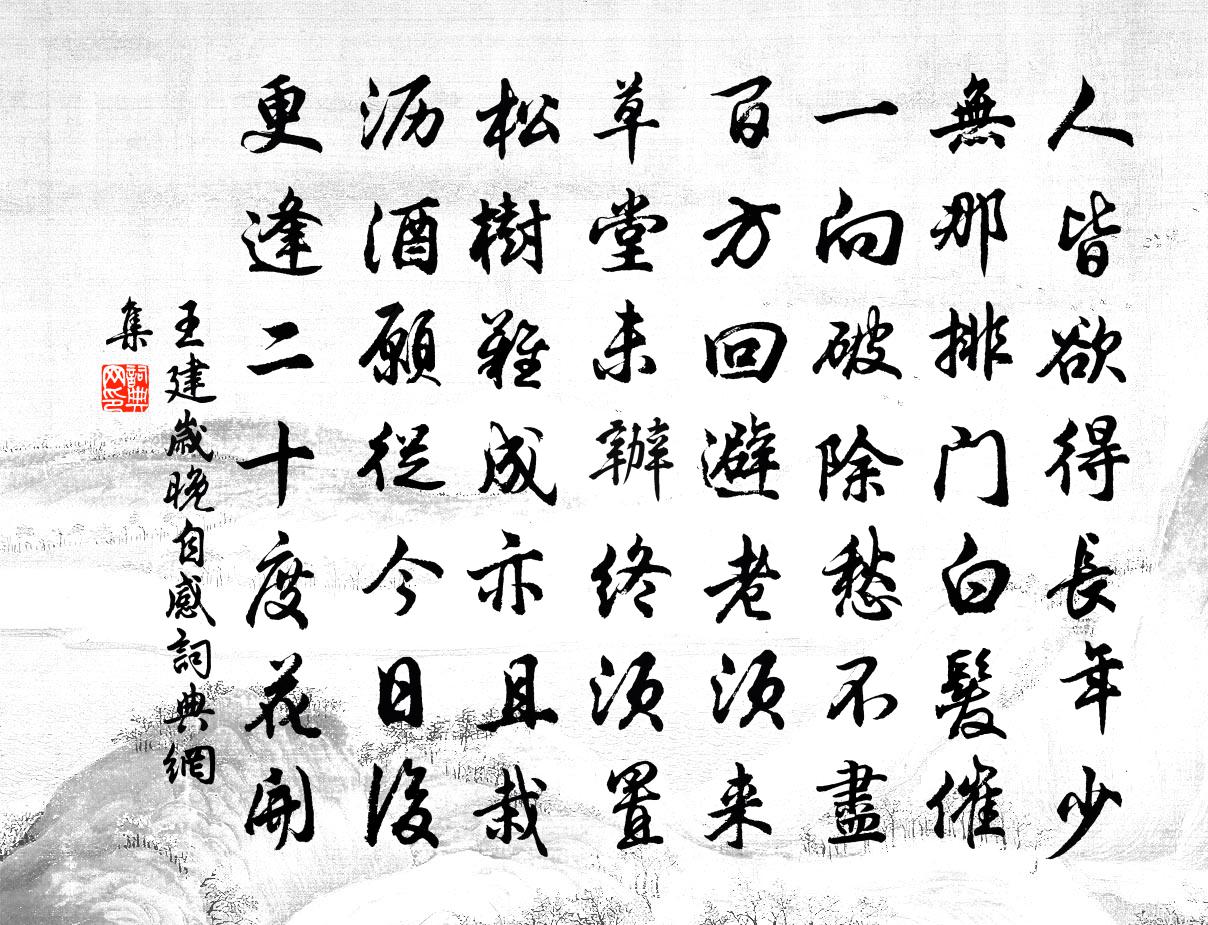 人皆欲得長年少
無那排门白髮催
一向破除愁不盡
百方回避老須来
草堂未辦終須置
松樹難成亦且栽
沥酒願從今日後
更逢二十度花開
王建歲晚自感詞典網
集
詞典
网印